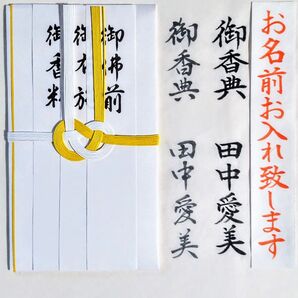 お名前お入れ致します
御香典 田中愛美
御香典 田中愛美
御佛前
御布施
御香料